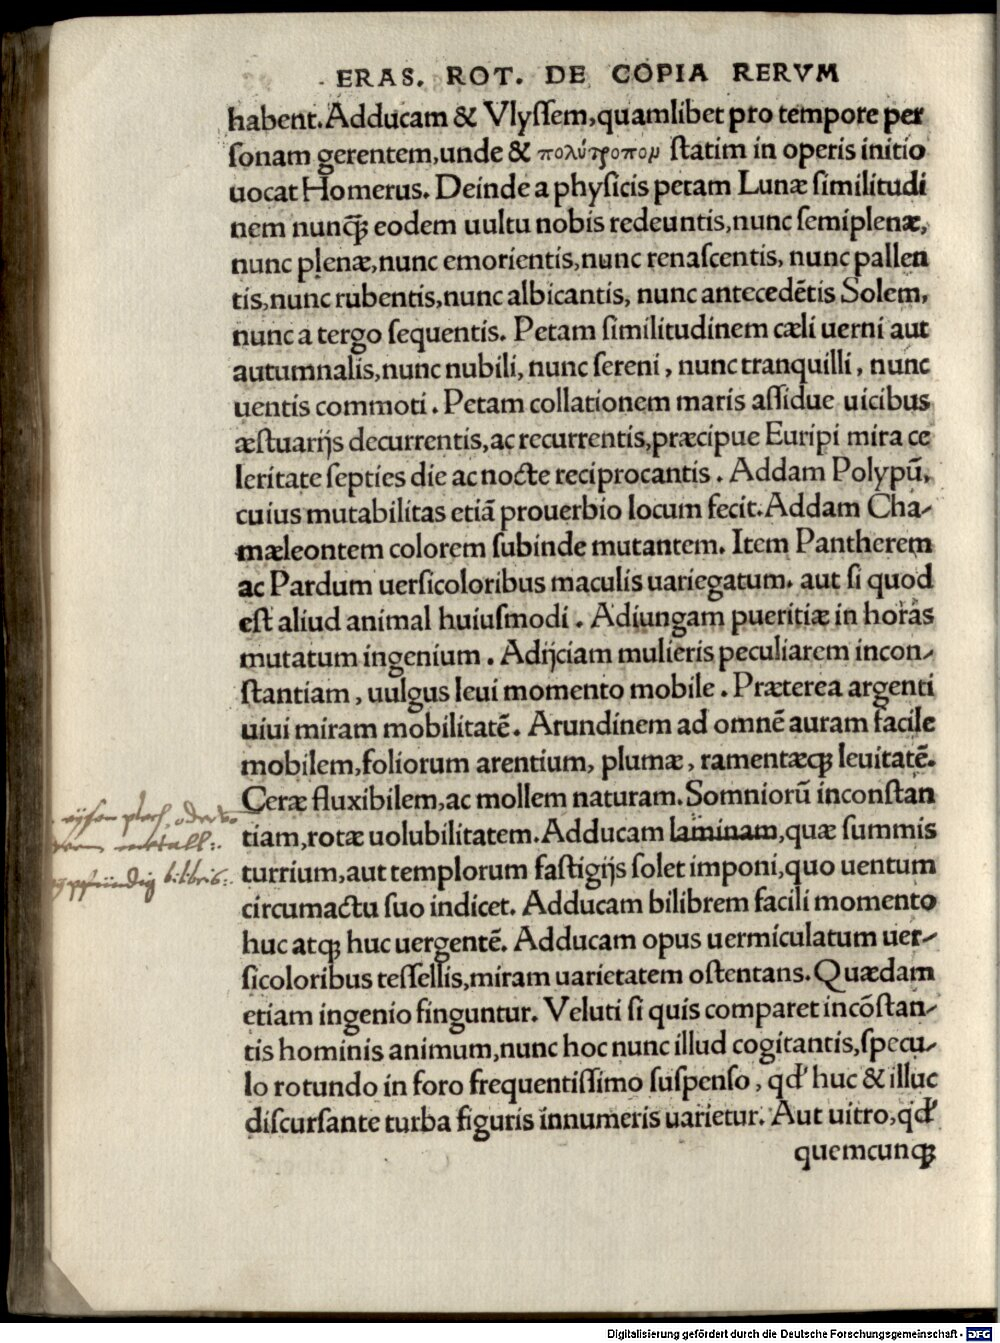 ERAS. ROT. DE COPIA RERVM
habent. Adducam & Vlyſſem, quamlibet pro tempore per
ſonam gerentem, unde & πολύτροπομ ſtatim in operis initio
uocat Homerus. Deinde a phyſicis petam Lunæ ſimilitudi
nem nunꝙ̃ eodem uultu nobis redeuntis, nunc ſemiplenæ,
nunc plenæ, nunc emorientis, nunc renaſcentis, nunc pallen
tis, nunc rubentis, nunc albicantis, nunc antecedẽtis Solem,
nunc a tergo ſequentis. Petam ſimilitudinem cæli uerni aut
autumnalis, nunc nubili, nunc ſereni, nunc tranquilli, nunc
uentis commoti. Petam collationem maris aſſidue uicibus
æſtuarijs decurrentis, ac recurrentis, præcipue Euripi mira ce
leritate ſepties die ac nocte reciprocantis. Addam Polypũ,
cuius mutabilitas etiã prouerbio locum fecit. Addam Cha-
mæleontem colorem ſubinde mutantem. Item Pantherem
ac Pardum uerſicoloribus maculis uariegatum. aut ſi quod
eſt aliud animal huiuſmodi. Adiungam pueritiæ in horas
mutatum ingenium. Adijciam mulieris peculiarem incon-
ſtantiam, uulgus leui momento mobile. Præterea argenti
uiui miram mobilitatẽ. Arundinem ad omnẽ auram facile
mobilem, foliorum arentium, plumæ, ramentæꝗ leuitatẽ.
Ceræ fluxibilem, ac mollem naturam. Somniorũ inconſtan
tiam, rotæ uolubilitatem. Adducam laminam, quæ ſummis
turrium, aut templorum faſtigijs ſolet imponi, quo uentum
circumactu ſuo indicet. Adducam bilibrem facili momento
huc atꝗ huc uergentẽ. Adducam opus uermiculatum uer-
ſicoloribus teſſellis, miram uarietatem oſtentans. Quædam
etiam ingenio finguntur. Veluti ſi quis comparet incõſtan-
tis hominis animum, nunc hoc nunc illud cogitantis, ſpecu-
lo rotundo in foro frequentiſſimo ſuſpenſo, qd' huc & illuc
diſcurſante turba figuris innumeris uarietur. Aut uitro, qd'
quemcunꝗ
metall:
bilibris:
Digitalisierung gefördert durch die Deutsche Forschungsgemeinschaft - DFG